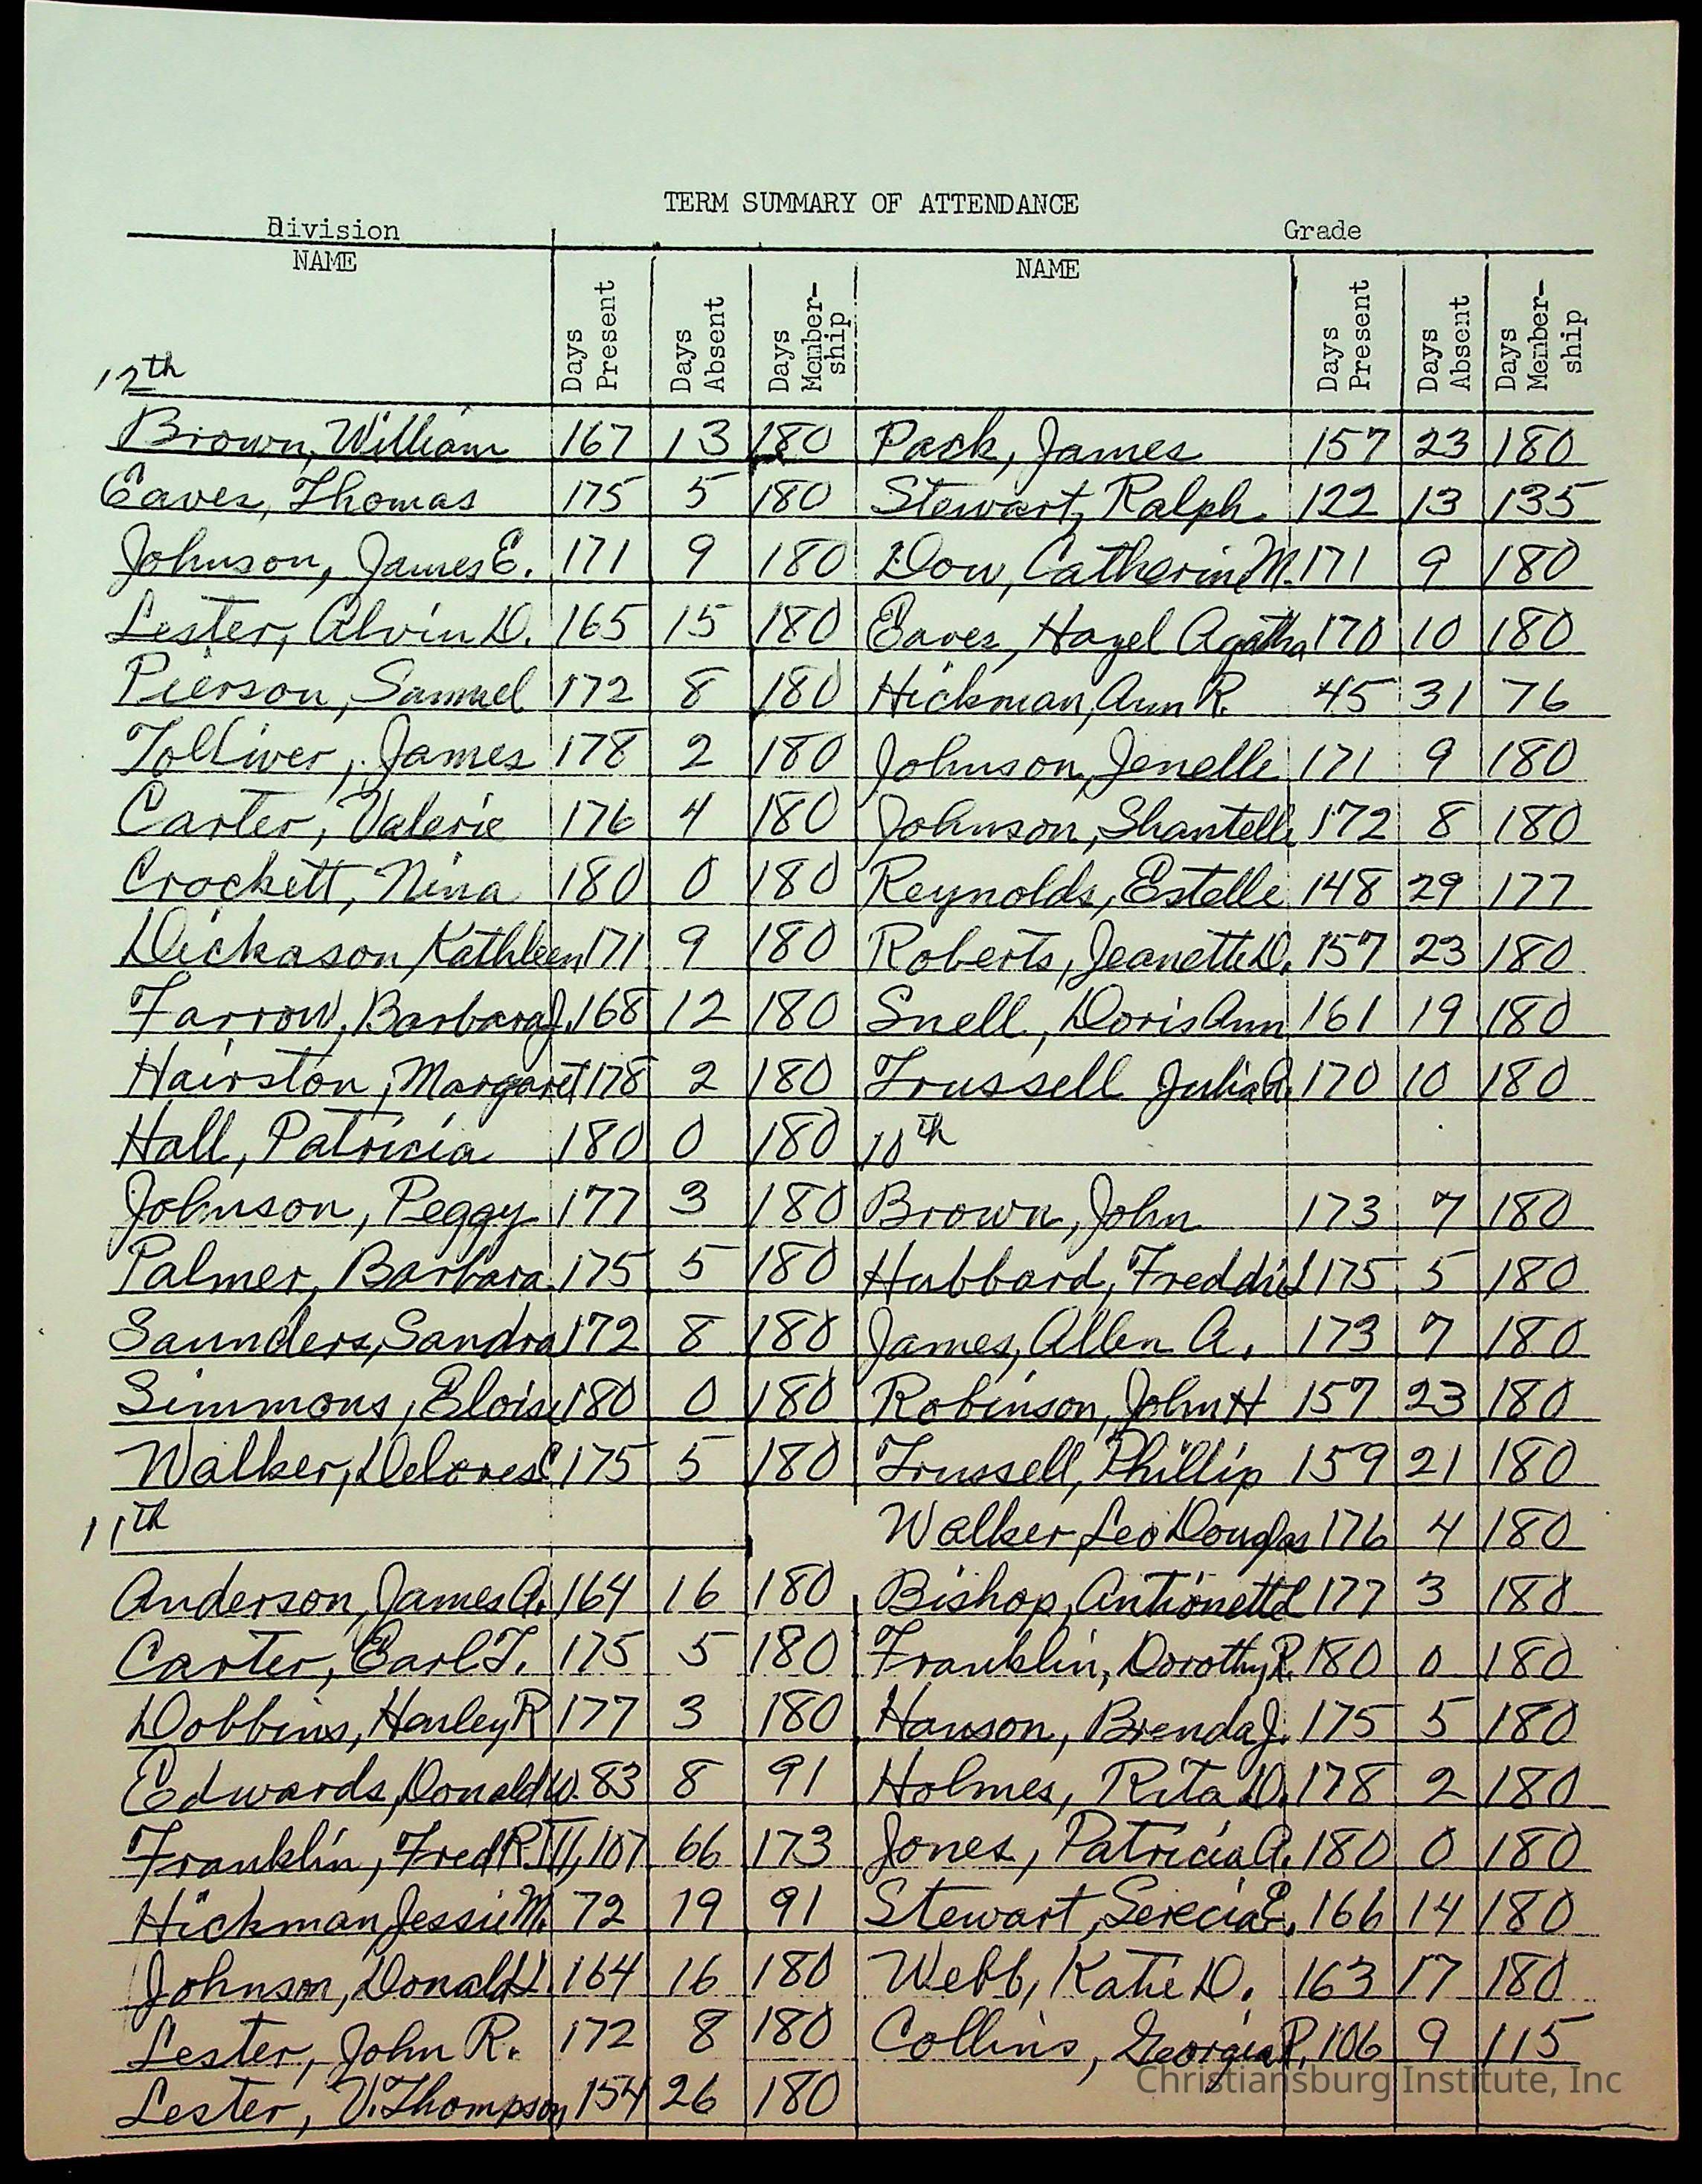 TERM SUMMARY OF ATTENDANCE
Division Grade
NAME Days Present Days Absent Days Member-ship NAME Days Present Days Absent Days Member-ship
12th
Brown, William 167 13 180
Eaves, Thomas 175 5 180
Johnson, James E. 171 9 180
Lester, Alvin D. 165 15 180
Pierson, Samuel 172 8 180
Tolliver, James 178 2 180
Carter, Valerie 176 4 180
Crockett, Nina 180 0 180
Dickason Kathleen 171 9 180
Farrow, Barbara J. 168 12 180
Hairston, Margaret 178 2 180
Hall, Patricia 180 0 180
Johnson, Peggy 177 3 180
Palmer, Barbara 175 5 180
Saunders, Sandra 172 8 180
Simmons, Eloise 180 0 180
Walker, Delores C 175 5 180
11th
Anderson, James A. 164 16 180
Carter, Earl T. 175 5 180
Dobbins, Harley R 177 3 180
Edwards, Donald W. 83 8 91
Franklin, Fred R. III, 107 66 173
Hickman Jessie M. 72 19 91
Johnson, Donald L. 164 16 180
Lester, John R. 172 8 180
Lester, V. Thompson 154 26 180
Pack, James 157 23 180
Stewart, Ralph. 122 13 135
Dow, Catherine M. 171 9 180
Eaves, Hazel Agatha 170 10 180
Hickman, Ann R. 45 31 76
Johnson, Jenelle 171 9 180
Johnson, Shantelle 172 8 180
Reynolds, Estelle 148 29 177
Roberts, Jeanette D. 157 23 180
Snell, Doris Ann 161 19 180
Trussell Julia A. 170 10 180
10th
Brown, John 173 7 180
Hubbard, Freddie L 175 5 180
James, Allen A. 173 7 180
Robinson, John H 157 23 180
Trussell, Phillip 159 21 180
Walker, Leo Douglas 176 4 180
Bishop, Antionette L 177 3 180
Franklin, Dorothy R. 180 0 180
Hanson, Brenda J. 175 5 180
Holmes, Rita D. 178 2 180
Jones, Patricia A. 180 0 180
Stewart, Serecia E. 166 14 180
Webb, Katie D. 163 17 180
Collins, Georgia P. 106 9 115
Christiansburg Institute, Inc